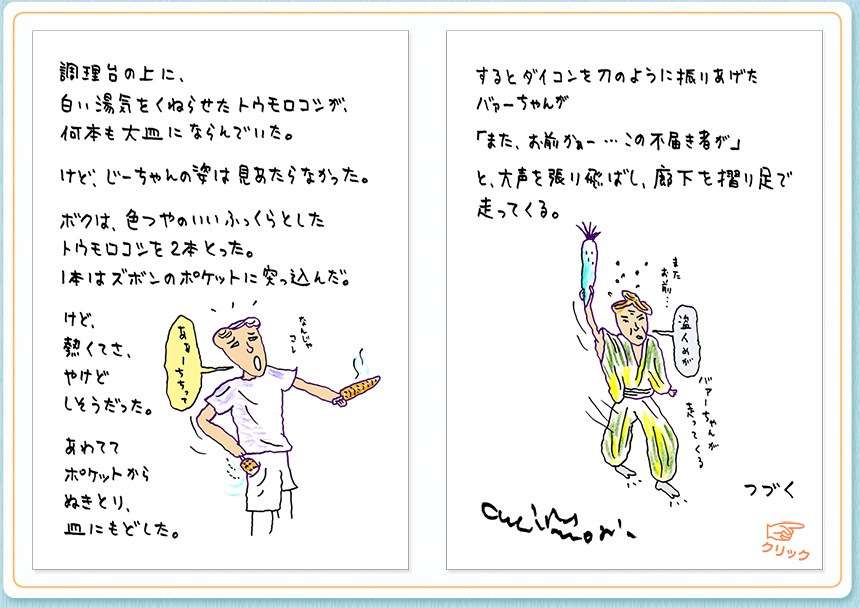 調理台の上に、
白い湯気をくねらせたトウモロコシが、
何本も大皿にならんでいた。
けど、じーちゃんの姿は見あたらなかった。
ボクは、色つやのいいふっくらとした
トウモロコシを2本とった。
1本はズボンのポケットに突っ込んだ。
けど、
熱くてさ、
やけど
しそうだった。
あわてて
ポケットから
ぬきとり、
皿にもどした。
あぁーちちって
なんじゃ
コレ
するとダイコンを刀のように振りあげた
バァーちゃんが
「また、お前かぁー…この不届き者が」
と、大声を張り飛ばし、廊下を摺り足で
走ってくる。
また
お前…
盗人めが
バァーちゃんが
走ってくる
つづく
クリック